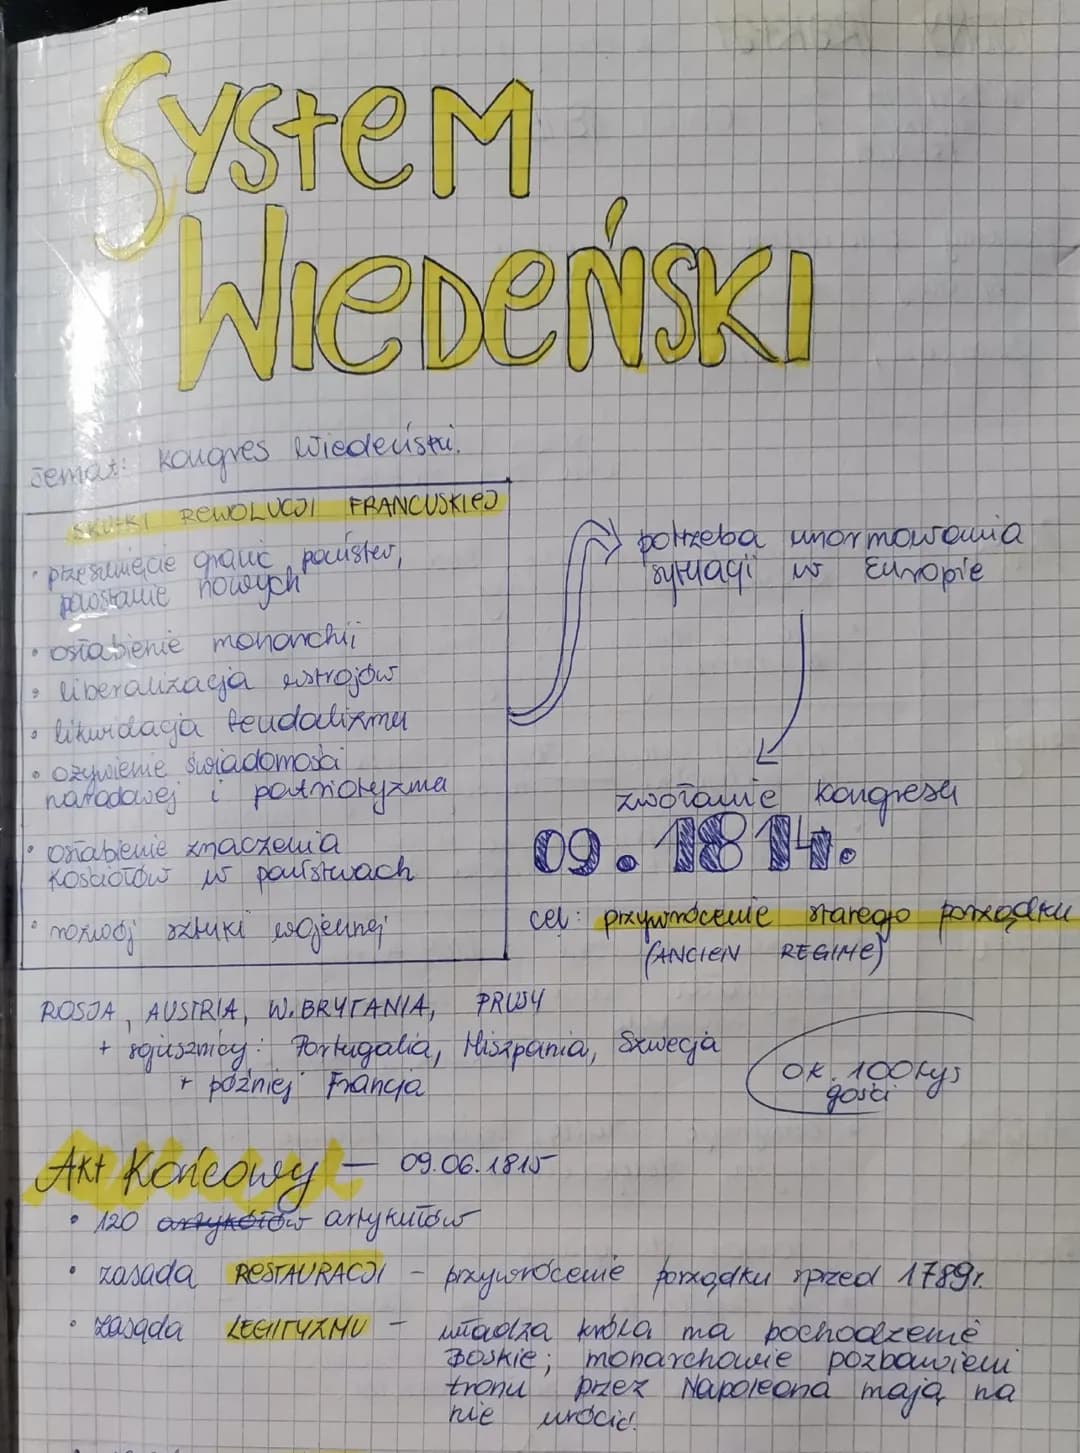 SYSTEM
WIEDEŃSKI
Temat: Kongres Wiedeński.
SKUTKI REWOLUCJI FRANCUSKIEJ
• przesunięcie granic państw,
powstanie nowych
• osłabienie monarchii
• liberalizacja ustrojów
• likwidacja feudalizmu
• ożywienie świadomości
narodowej i patriotyzma
• osłabienie znaczenia
kościołów w państwach
• rozwój sztuki wojennej
potrzeba unormowania
sytuacji w Europie
zwołanie kongresu
09. 1814.
cel: przywrócenie starego porządku
(ANCIEN REGIME)
ROSJA, AUSTRIA, W. BRYTANIA, PRUSY
+ sojusznicy: Portugalia, Hiszpania, Szwecja
+ później Francja
OK. 100 tyś
gości
Akt Końcowy — 09.06.1815
• 120 artykułów
• zasada RESTAURACJI - przywrócenie porządku sprzed 1789r.
• zasada LEGITYZMU - władza króla ma pochodzenie
Boskie; monarchowie pozbawieni
tronu przez Napoleona mają na
nie wrócić.